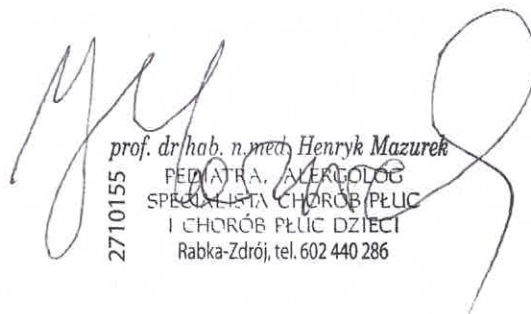 prof. dr hab. n. med. Henryk Mazurek
PEDIATRA, ALERGOLOG
SPECJALISTA CHORÓB PŁUC
I CHORÓB PŁUC DZIECI
Rabka-Zdrój, tel. 602 440 286
2710155